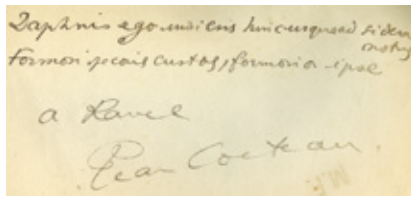 Daphnis ego in silvis hinc usque ad sidera
notus
Formosi pecoris custos, formosior ipse
a Ravel
Jean Cocteau.